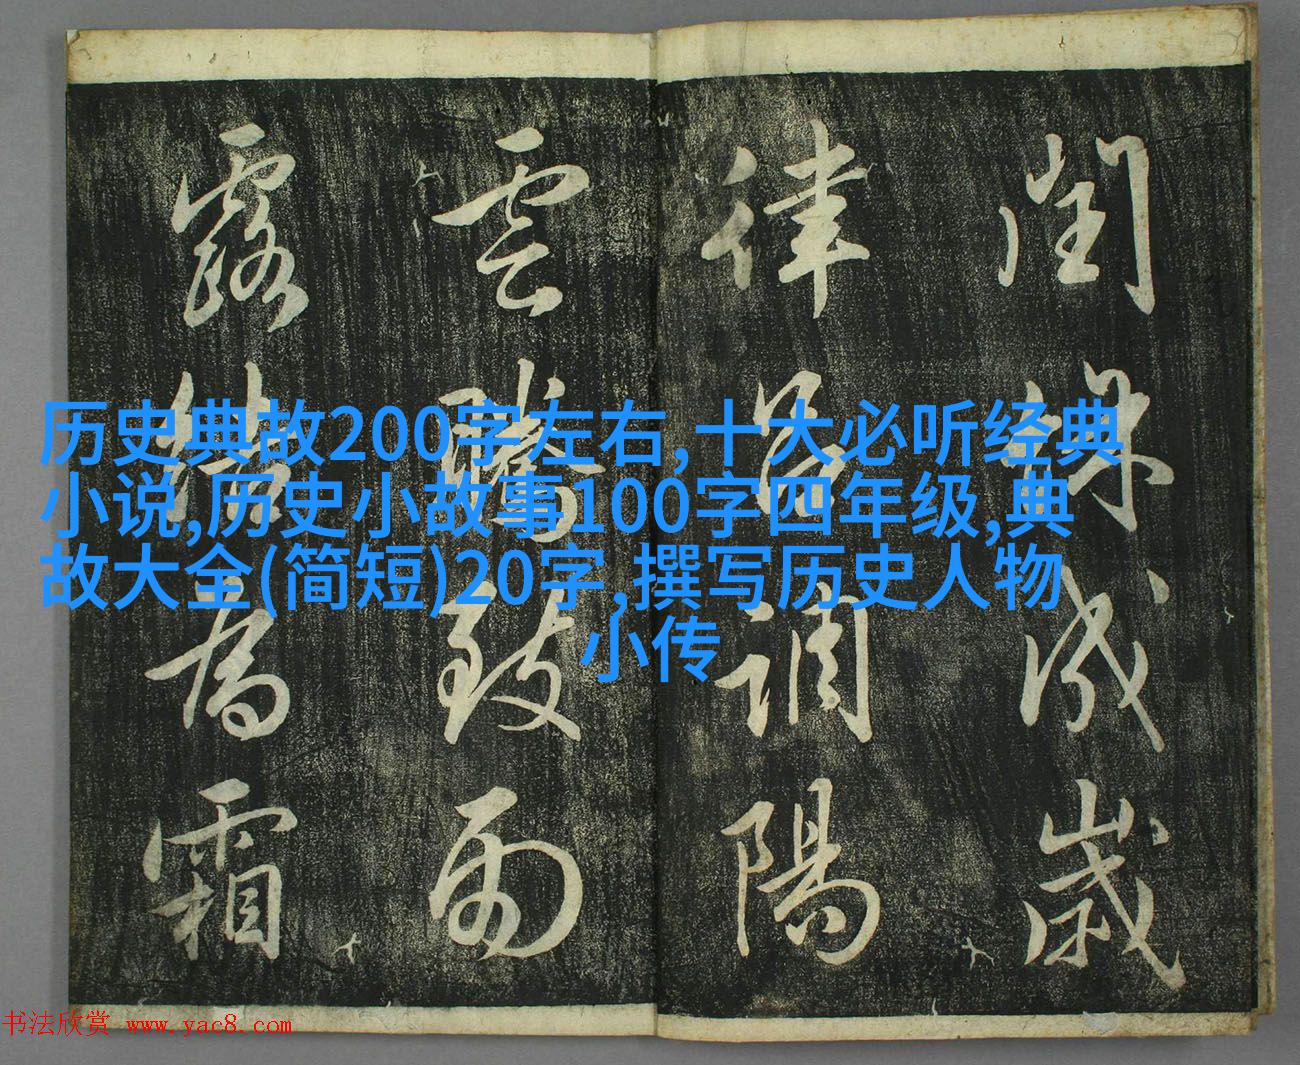 閏餘成歲
律呂調陽
雲騰致雨
露結為霜
历史典故200字左右,十大必听经典
小说,历史小故事100字四年级,典
故大全(简短)20字,撰写历史人物
小传
书法欣赏 www.yac8.com